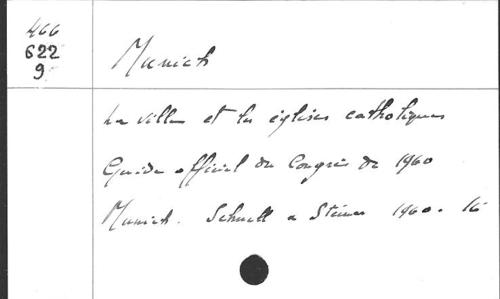 466
622
9
Munich
La ville et les églises catholiques
Guide officiel du Congrès de 1960
Munich. Schnell & Steiner 1960. 16